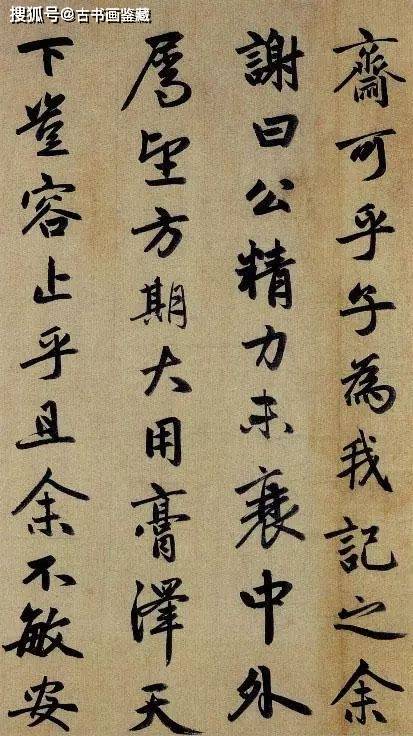 搜狐号@古书画鉴藏
齋可乎子為我記之余
謝曰公精力未衰中外
属望方期大用膏澤天
下豈容止乎且余不敏安